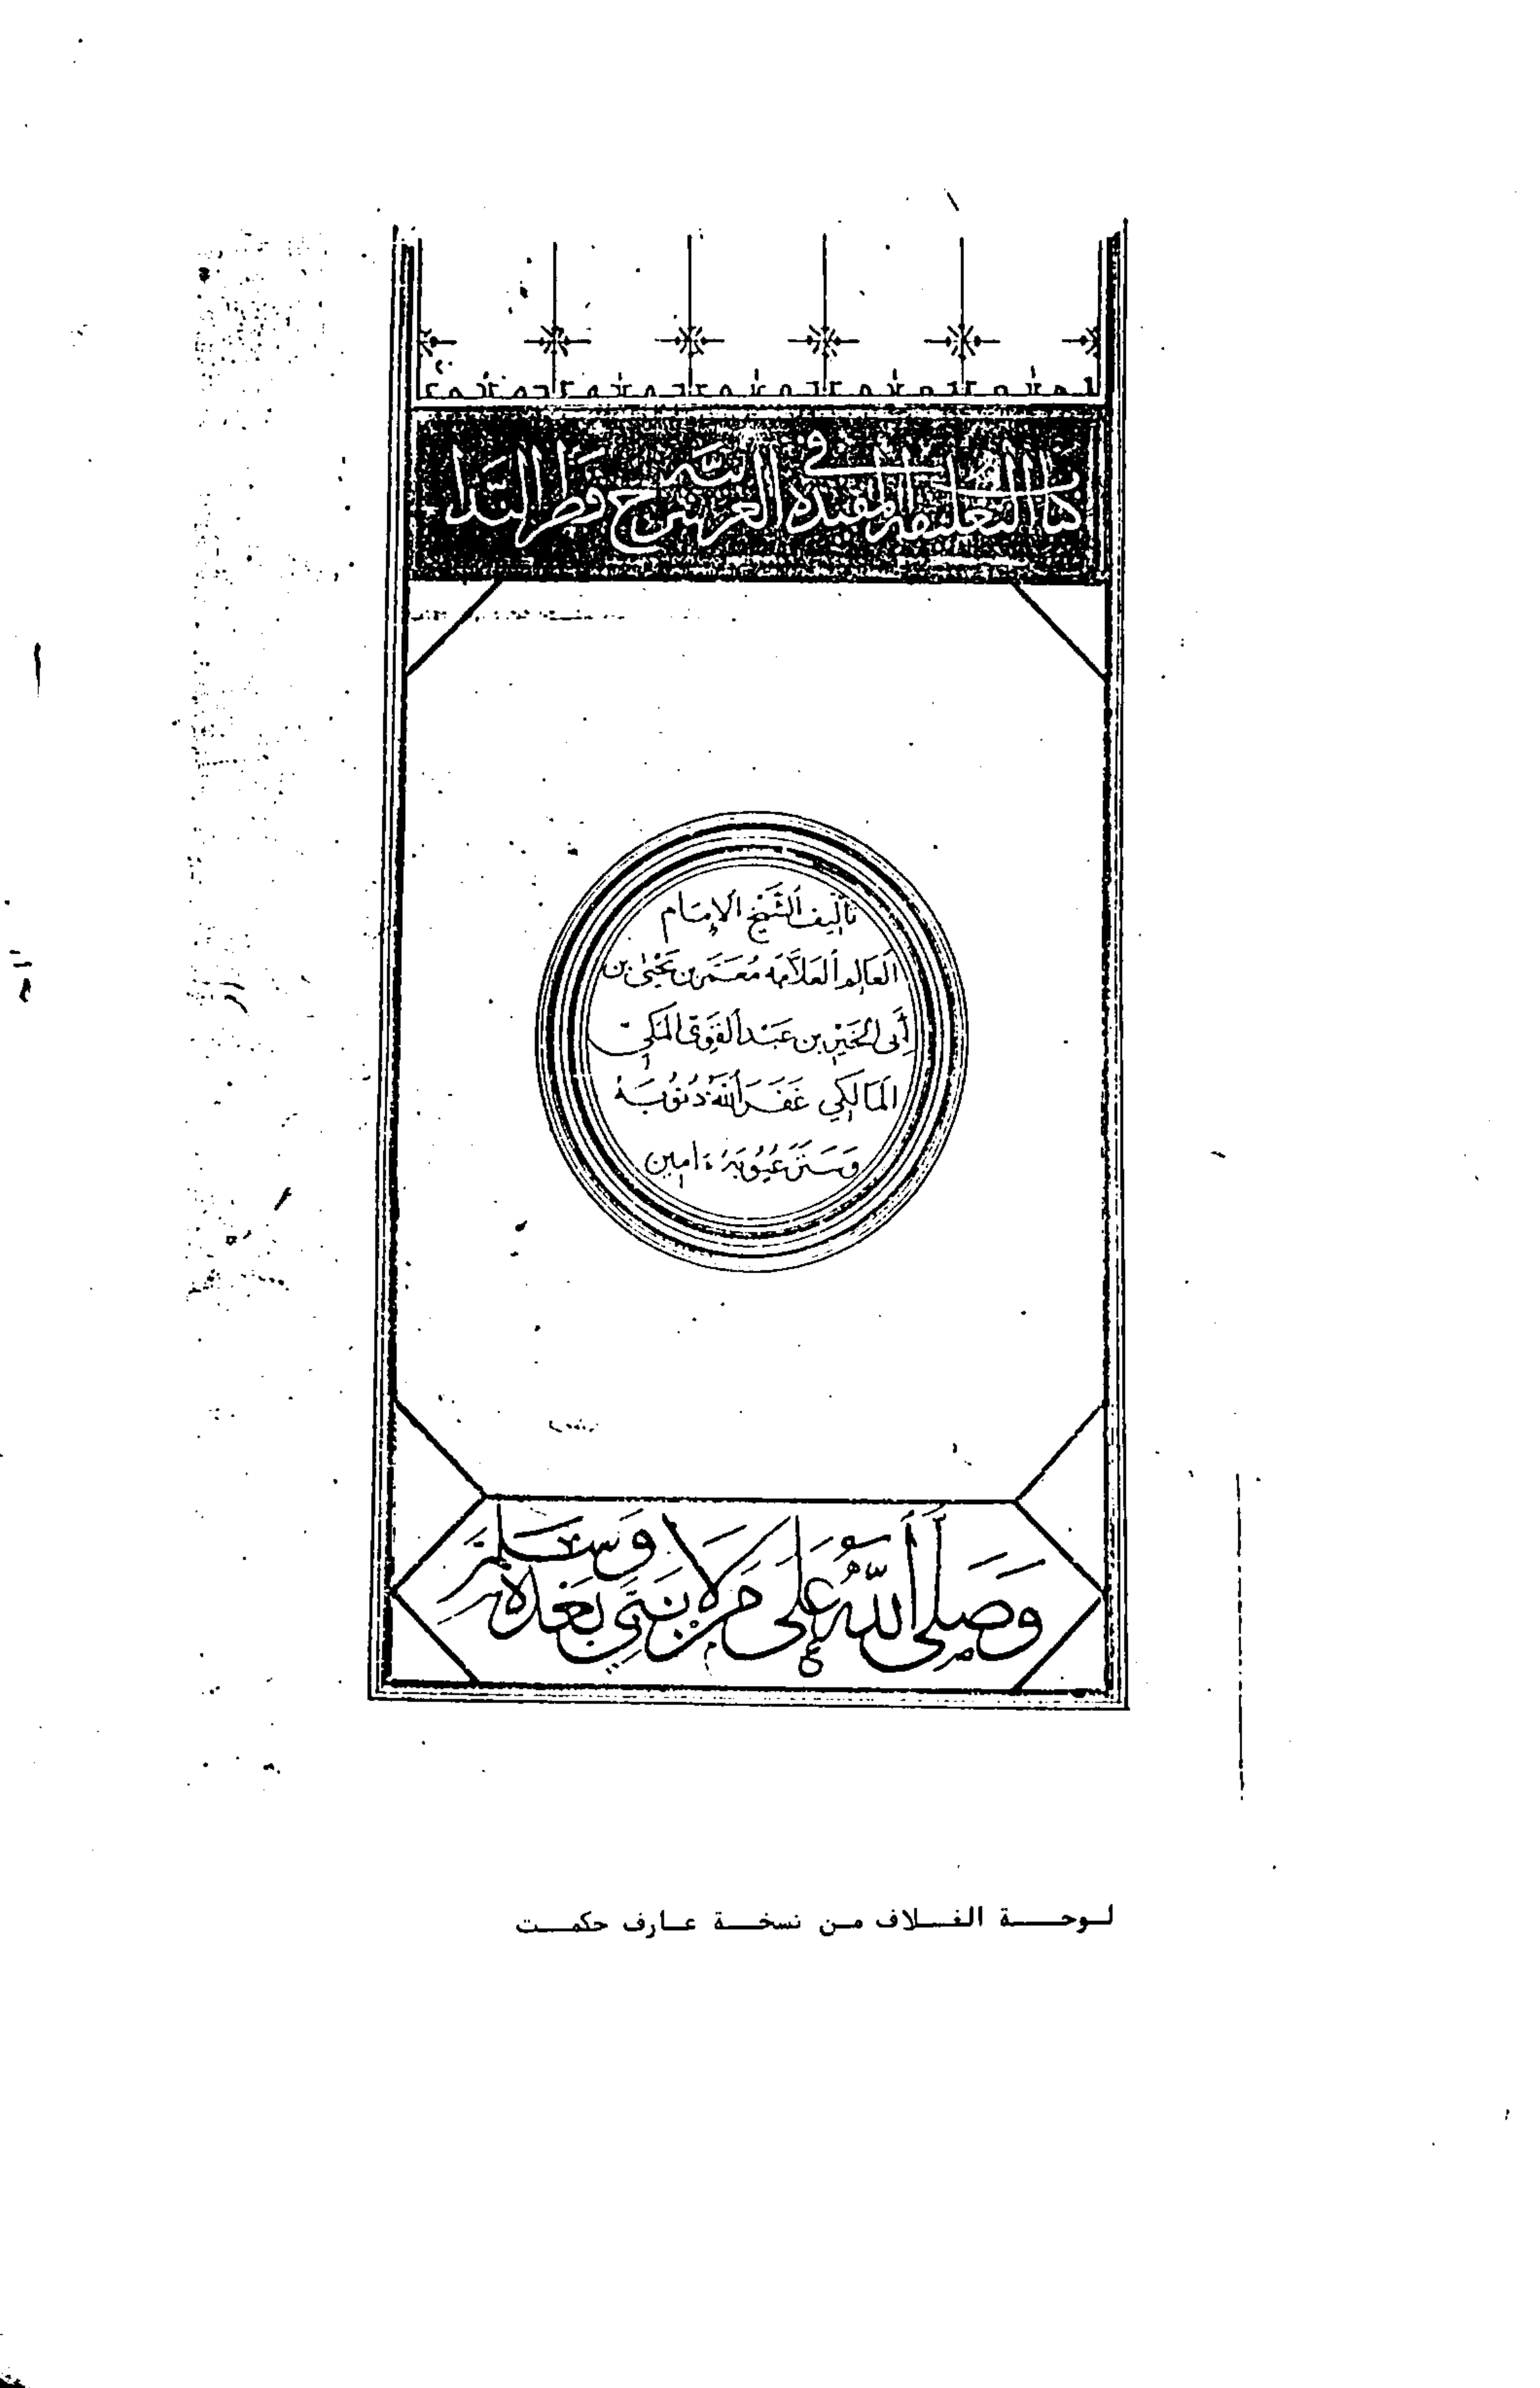 كتاب التعليقة المفيدة في العربية شرح قطر الندا
تَأليف الشَّيْخ الإِمَام
العَالِم العَلَّامَة مُعَمَّر بن يَحْيَى بن
أَبي الخَيْر بن عَبْد القَوِي المَكِيّ
المَالِكي غَفَرَ اللهُ ذُنُوبَهُ
وَسَتَرَ عُيُوبَهُ امين
وَصَلَّى اللَّهُ عَلَى مَن لا نَبيَّ بَعْدَهُ وَسَلَّم
لوحة الغلاف من نسخة عارف حكمت